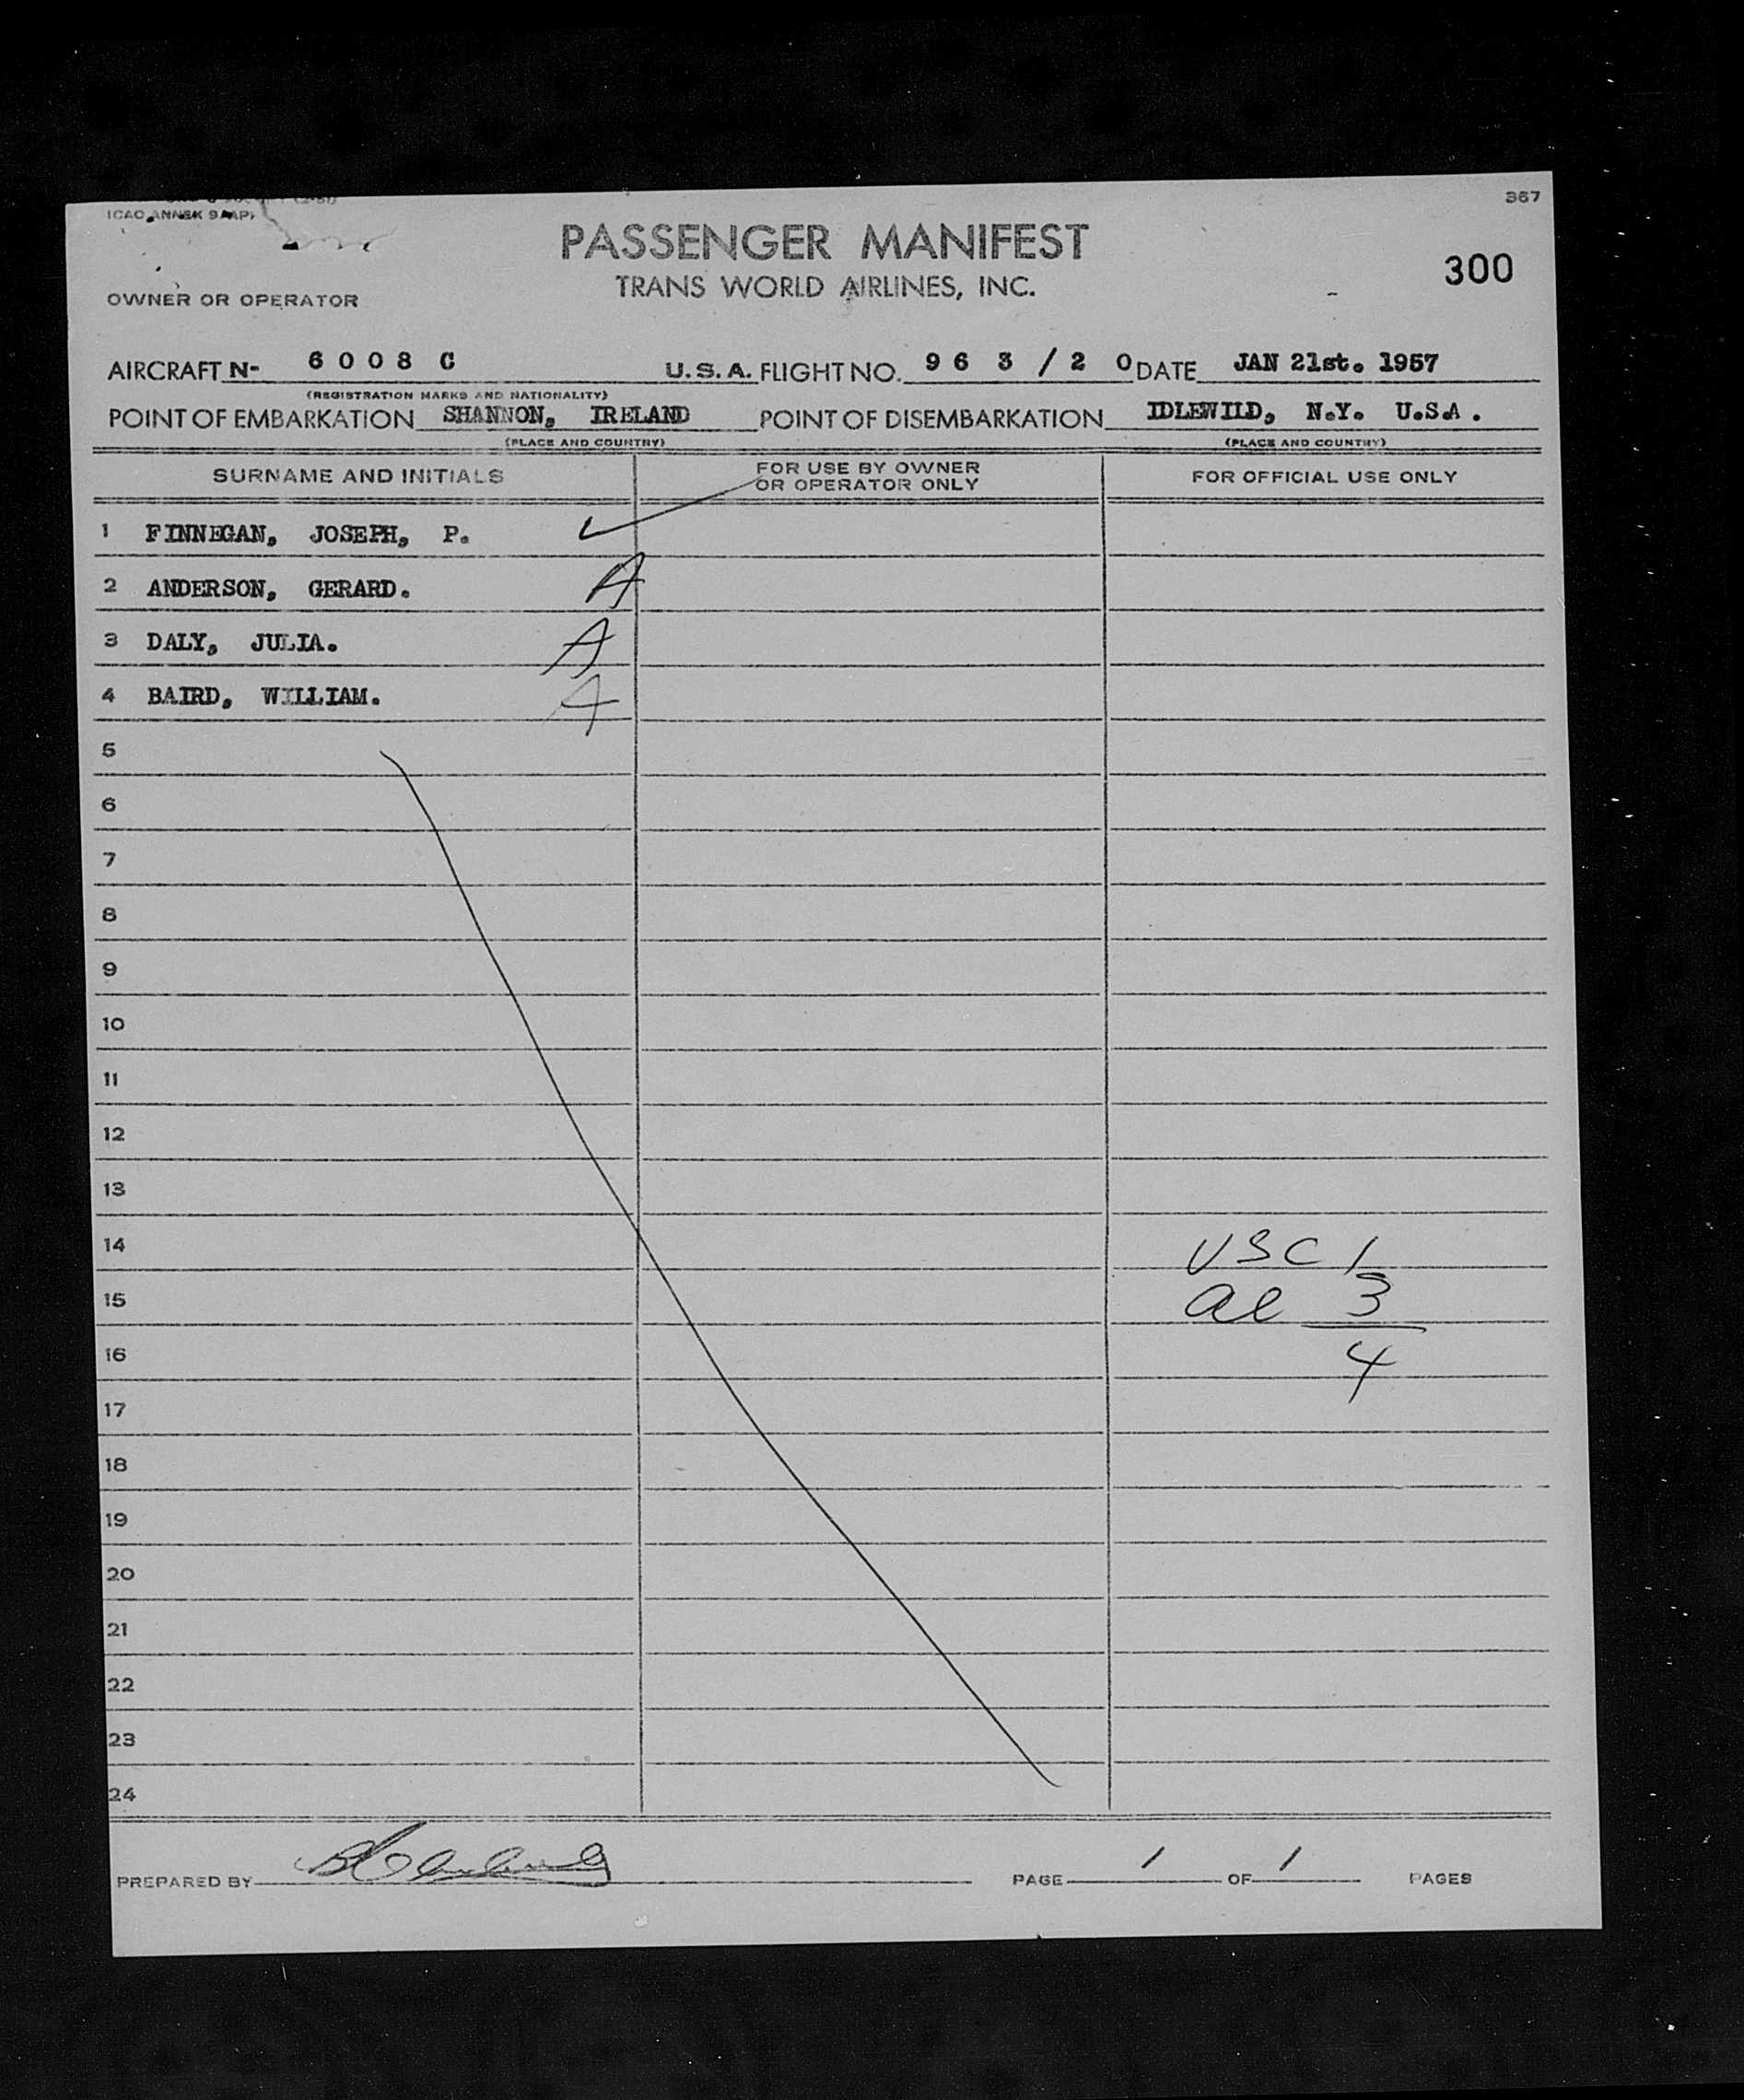 367
ICAO ANNEX 9
PASSENGER MANIFEST
300
TRANS WORLD AIRLINES, INC.
OWNER OR OPERATOR
AIRCRAFT N- 6008 C U.S.A. FLIGHT NO. 963/20 DATE JAN 21st. 1957
(REGISTRATION MARKS AND NATIONALITY)
POINT OF EMBARKATION SHANNON, IRELAND POINT OF DISEMBARKATION IDLEWILD, N.Y. U.S.A.
(PLACE AND COUNTRY) (PLACE AND COUNTRY)
SURNAME AND INITIALS FOR USE BY OWNER OR OPERATOR ONLY FOR OFFICIAL USE ONLY
1 FINNEGAN, JOSEPH, P. ✓
2 ANDERSON, GERARD. A
3 DALY, JULIA. A
4 BAIRD, WILLIAM. A
5
6
7
8
9
10
11
12
13
14 USC 1
15 al 3
16 4
17
18
19
20
21
22
23
24
PREPARED BY PAGE 1 OF 1 PAGES